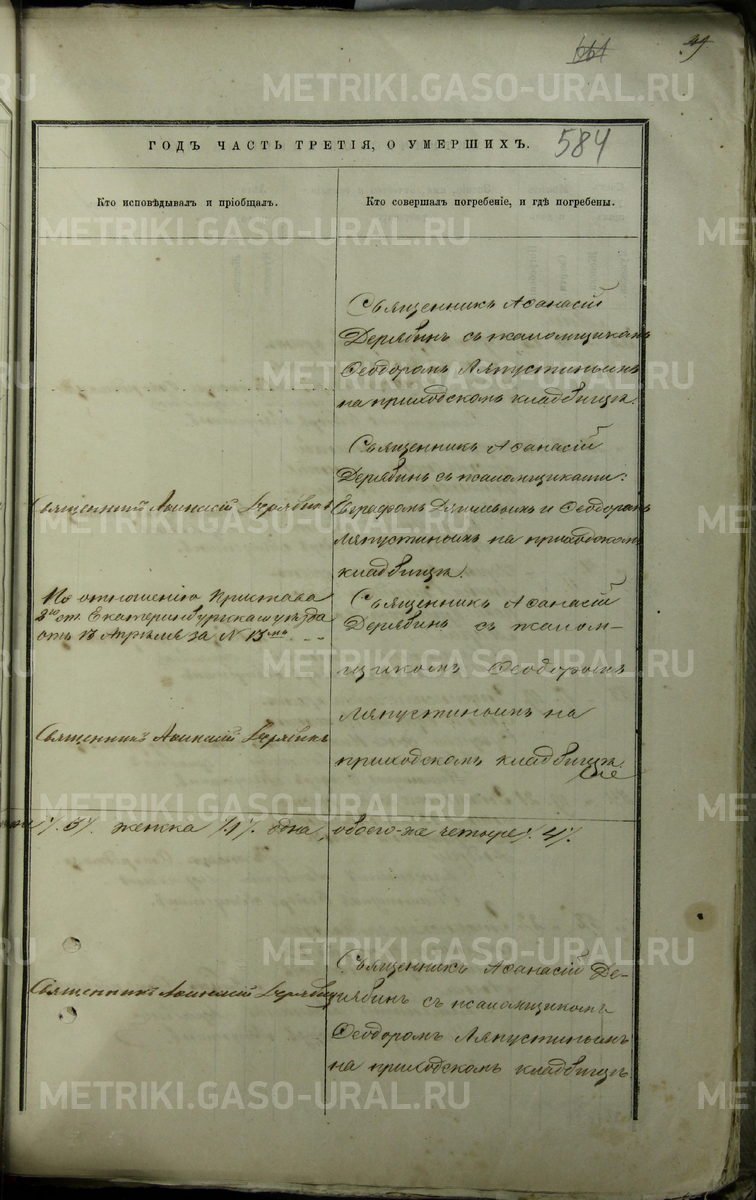 584
ГОДЪ ЧАСТЬ ТРЕТІЯ, О УМЕРШИХЪ.
Кто исповѣдывалъ и пріобщалъ.
Кто совершалъ погребеніе, и гдѣ погребены.
Священникъ Аѳанасій
Дерябинъ съ псаломщикомъ
Ѳеодоромъ Ляпустинымъ
на приходскомъ кладбищѣ.
Священникъ Аѳанасій Дерябинъ
Священникъ Аѳанасій
Дерябинъ съ псаломщиками:
и Ѳеодоромъ
Ляпустинымъ на приходскомъ
кладбищѣ.
По отношенію Пристава
2го ст. Екатеринбургскаго уѣзда
отъ 13 Апрѣля за №
Священникъ Аѳанасій Дерябинъ
Священникъ Аѳанасій
Дерябинъ съ псалом-
щикомъ Ѳеодоромъ
Ляпустинымъ на
приходскомъ кладбищѣ.
/. 3/. женска /.1/. одна, обоего-же четыре /. 4/.
Священникъ Аѳанасій Дерябинъ
Священникъ Аѳанасій Де-
рябинъ съ псаломщикомъ
Ѳеодоромъ Ляпустинымъ
на приходскомъ кладбищѣ
METRIKI.GASO-URAL.RU